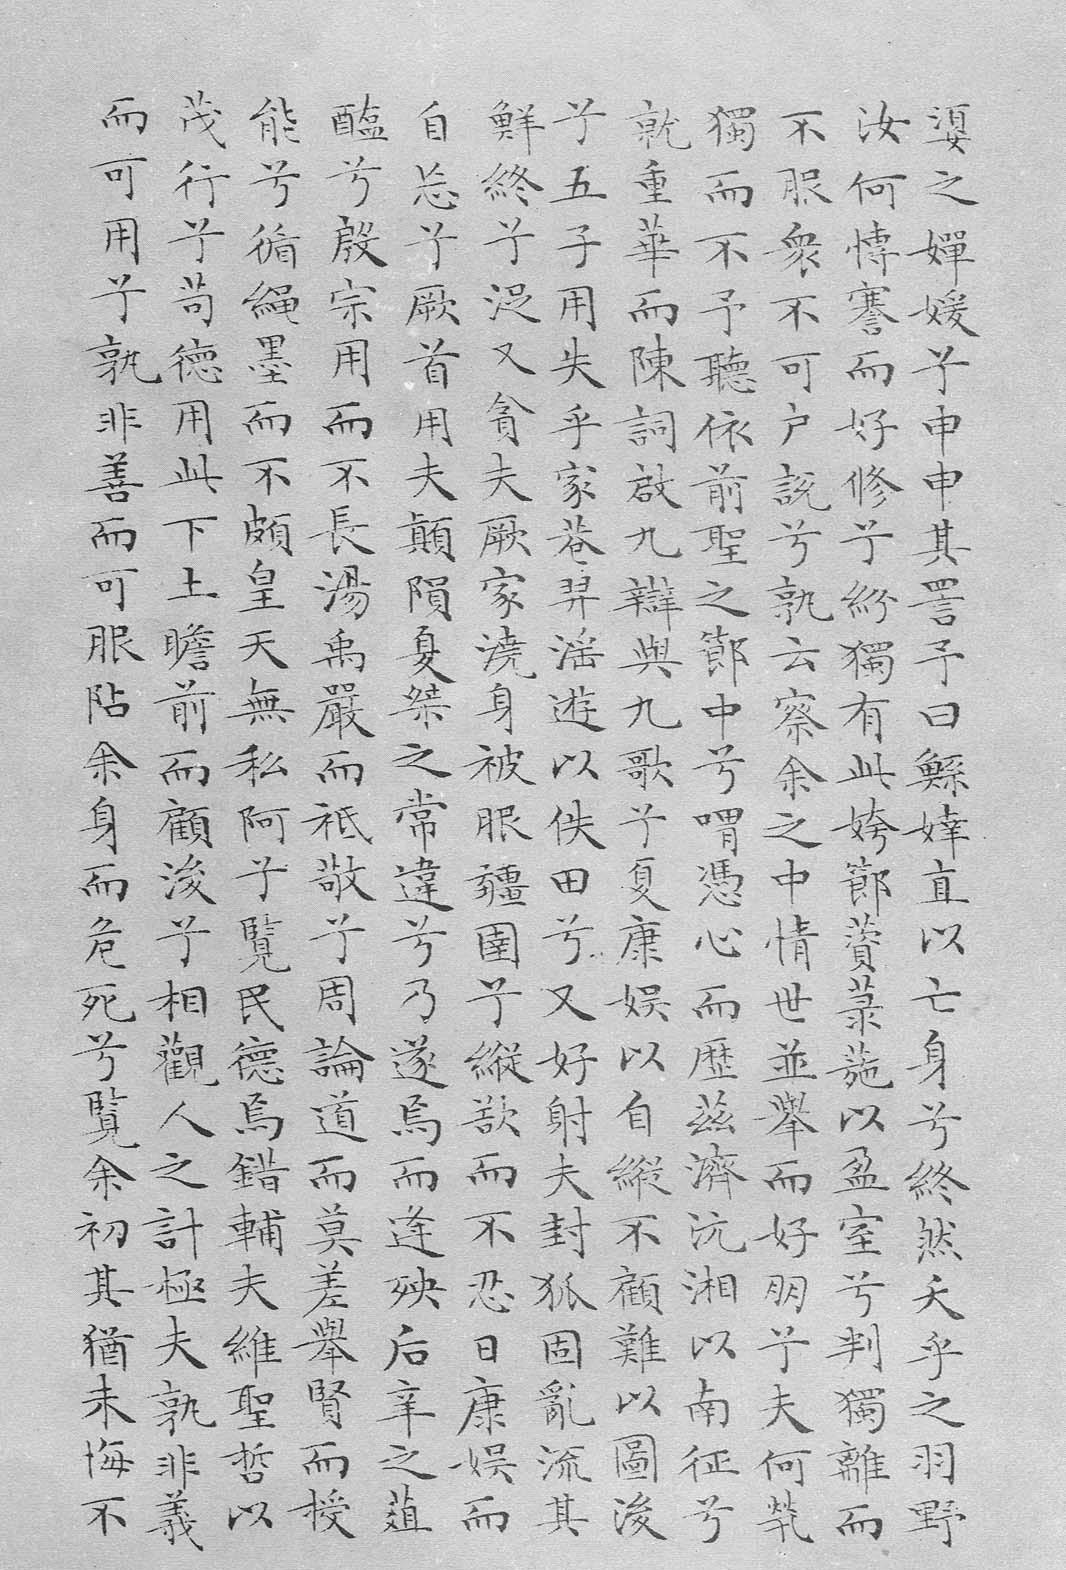 媭之嬋媛兮申申其詈予曰鯀婞直以亡身兮終然夭乎之羽野
汝何博謇而好修兮紛獨有此姱節薋菉葹以盈室兮判獨離而
不服衆不可户說兮孰云察余之中情世並舉而好朋兮夫何煢
獨而不予聽依前聖之節中兮喟憑心而歷茲濟沅湘以南征兮
就重華而陳詞啟九辯與九歌兮夏康娛以自縱不顧難以圖後
兮五子用失乎家巷羿淫遊以佚田兮又好射夫封狐固亂流其
鮮終兮浞又貪夫厥家澆身被服彊圉兮縱欲而不忍日康娛而
自忘兮厥首用夫顛隕夏桀之常違兮乃遂焉而逢殃后辛之菹
醢兮殷宗用而不長湯禹嚴而祗敬兮周論道而莫差舉賢而授
能兮循繩墨而不頗皇天無私阿兮覽民德焉錯輔夫維聖哲以
茂行兮苟德用此下土瞻前而顧後兮相觀人之計極夫孰非義
而可用兮孰非善而可服阽余身而危死兮覽余初其猶未悔不